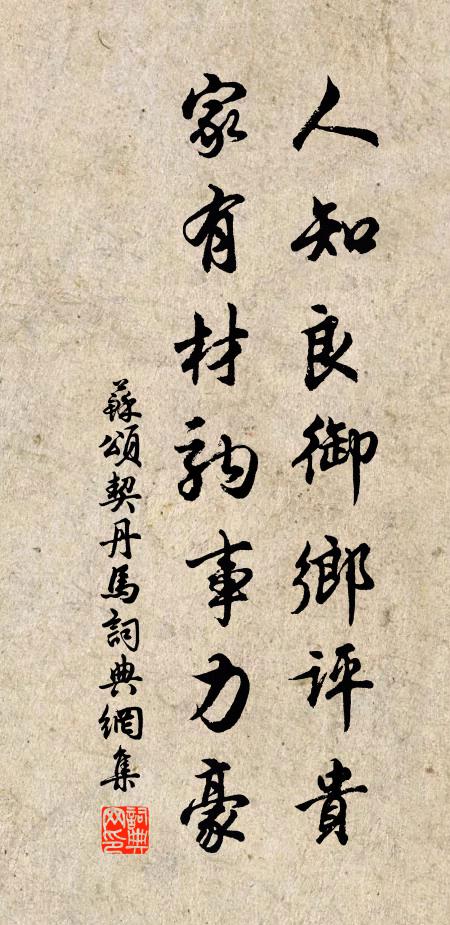 人知良御鄉評貴
家有材駒事力豪
蘇頌契丹馬詞典網集
詞典
网印